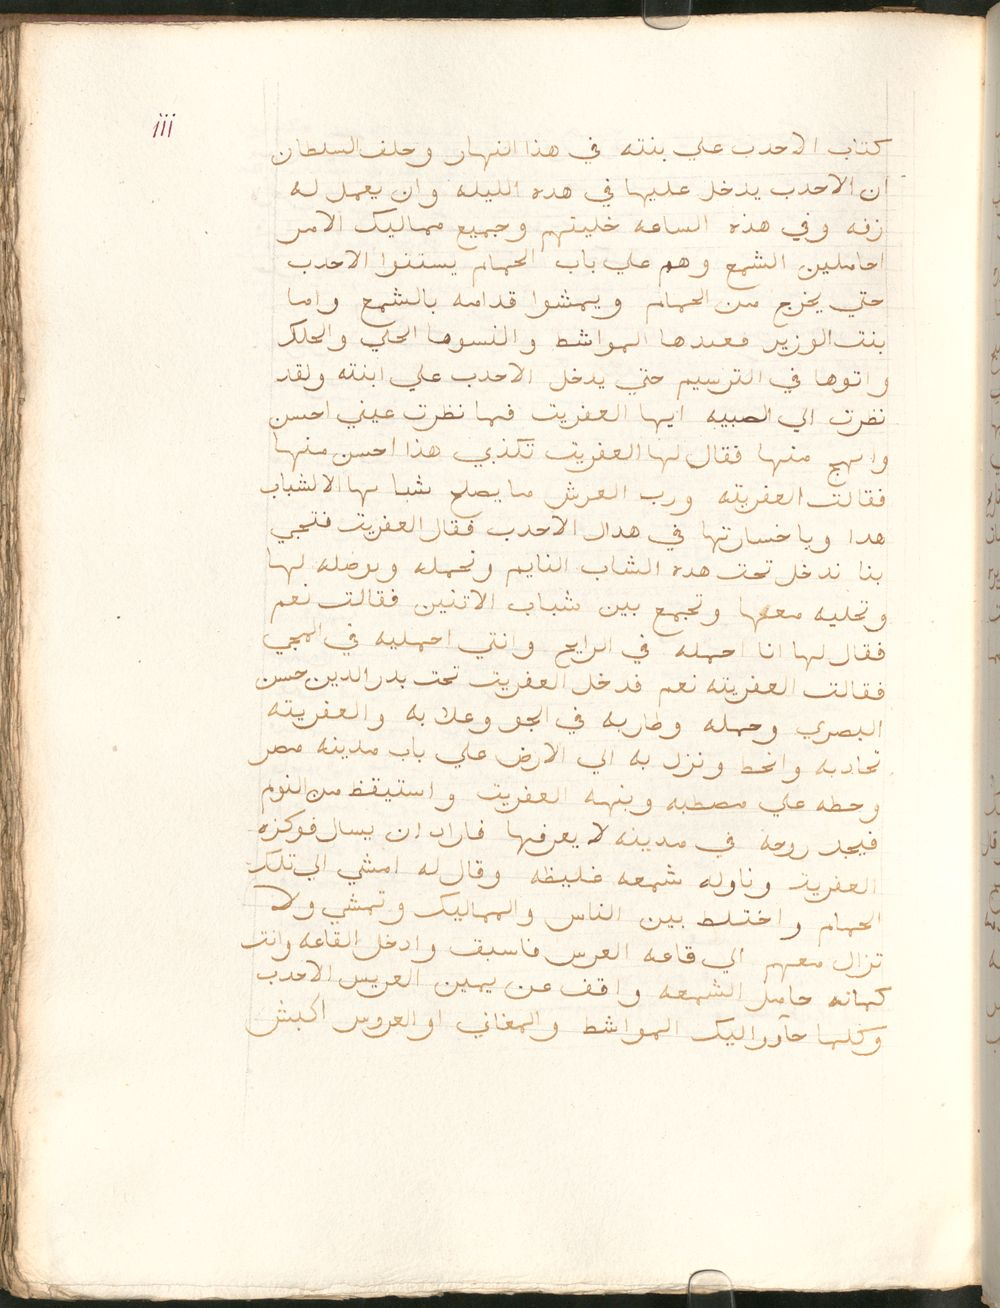 iii
كتاب الاحدب علي بنته في هذا النهار وحلف السلطان
ان الاحدب يدخل عليها في هده الليله وان يعمل له
زفه وفي هذه الساعه خليتهم وجميع مماليك الامر
احاملين الشمع وهم علي باب الحمام يستنوا الاحدب
حتي يخرج من الحمام ويمشوا قدامه بالشمع واما
بنت الوزير فعندها المواشط والنسوها الحلي والحلل
واتوها في الترسيم حتي يدخل الاحدب علي ابنته ولقد
نظرت الي الصبيه ايها العفريت فما نظرت عيني احسن
وابهج منها فقال لها العفريت تكذبي هذا احسن منها
فقالت العفريته ورب العرش ما يصلح شبابها الا لشباب
هدا ويا خسارتها في هدا الاحدب فقال العفريت فتجي
بنا ندخل تحت هده الشاب النايم ونحمله ونوصله لها
ونخليه معها ونجمع بين شباب الاتنين فقالت نعم
فقال لها انا احمله في الرايح وانتي احمليه في المجي
فقالت العفريته نعم فدخل العفريت تحت بدر الدين حسن
البصري وحمله وطار به في الجو وعلا به والعفريته
تحاديه وانحط ونزل به الي الارض علي باب مدينه مصر
وحطه علي مصطبه ونبهه العفريت واستيقظ من النوم
فيجد روحه في مدينه لا يعرفها فاراد ان يسال فوكزه
العفريت وناوله شمعه غليظه وقال له امشي الي تلك
الحمام واختلط بين الناس والمماليك وتمشي ولا
تزال معهم الي قاعه العرس فاسبق وادخل القاعه وانت
كمانه حامل الشمعه واقف عن يمين العريس الاحدب
وكلما جآوا اليك المواشط والمغاني او العروس اكبش